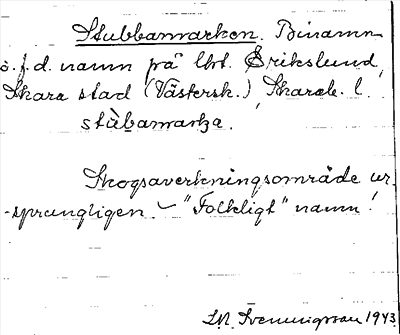 Stubbamarken. Binamn
o. f. d. namn på lht. Erikslund,
Skara stad (Västersk.), Skarab. l.
stùbamarka.
Skogsavverkningsområde ur-
sprungligen. – "Folkligt" namn!
Svenningsson 1943